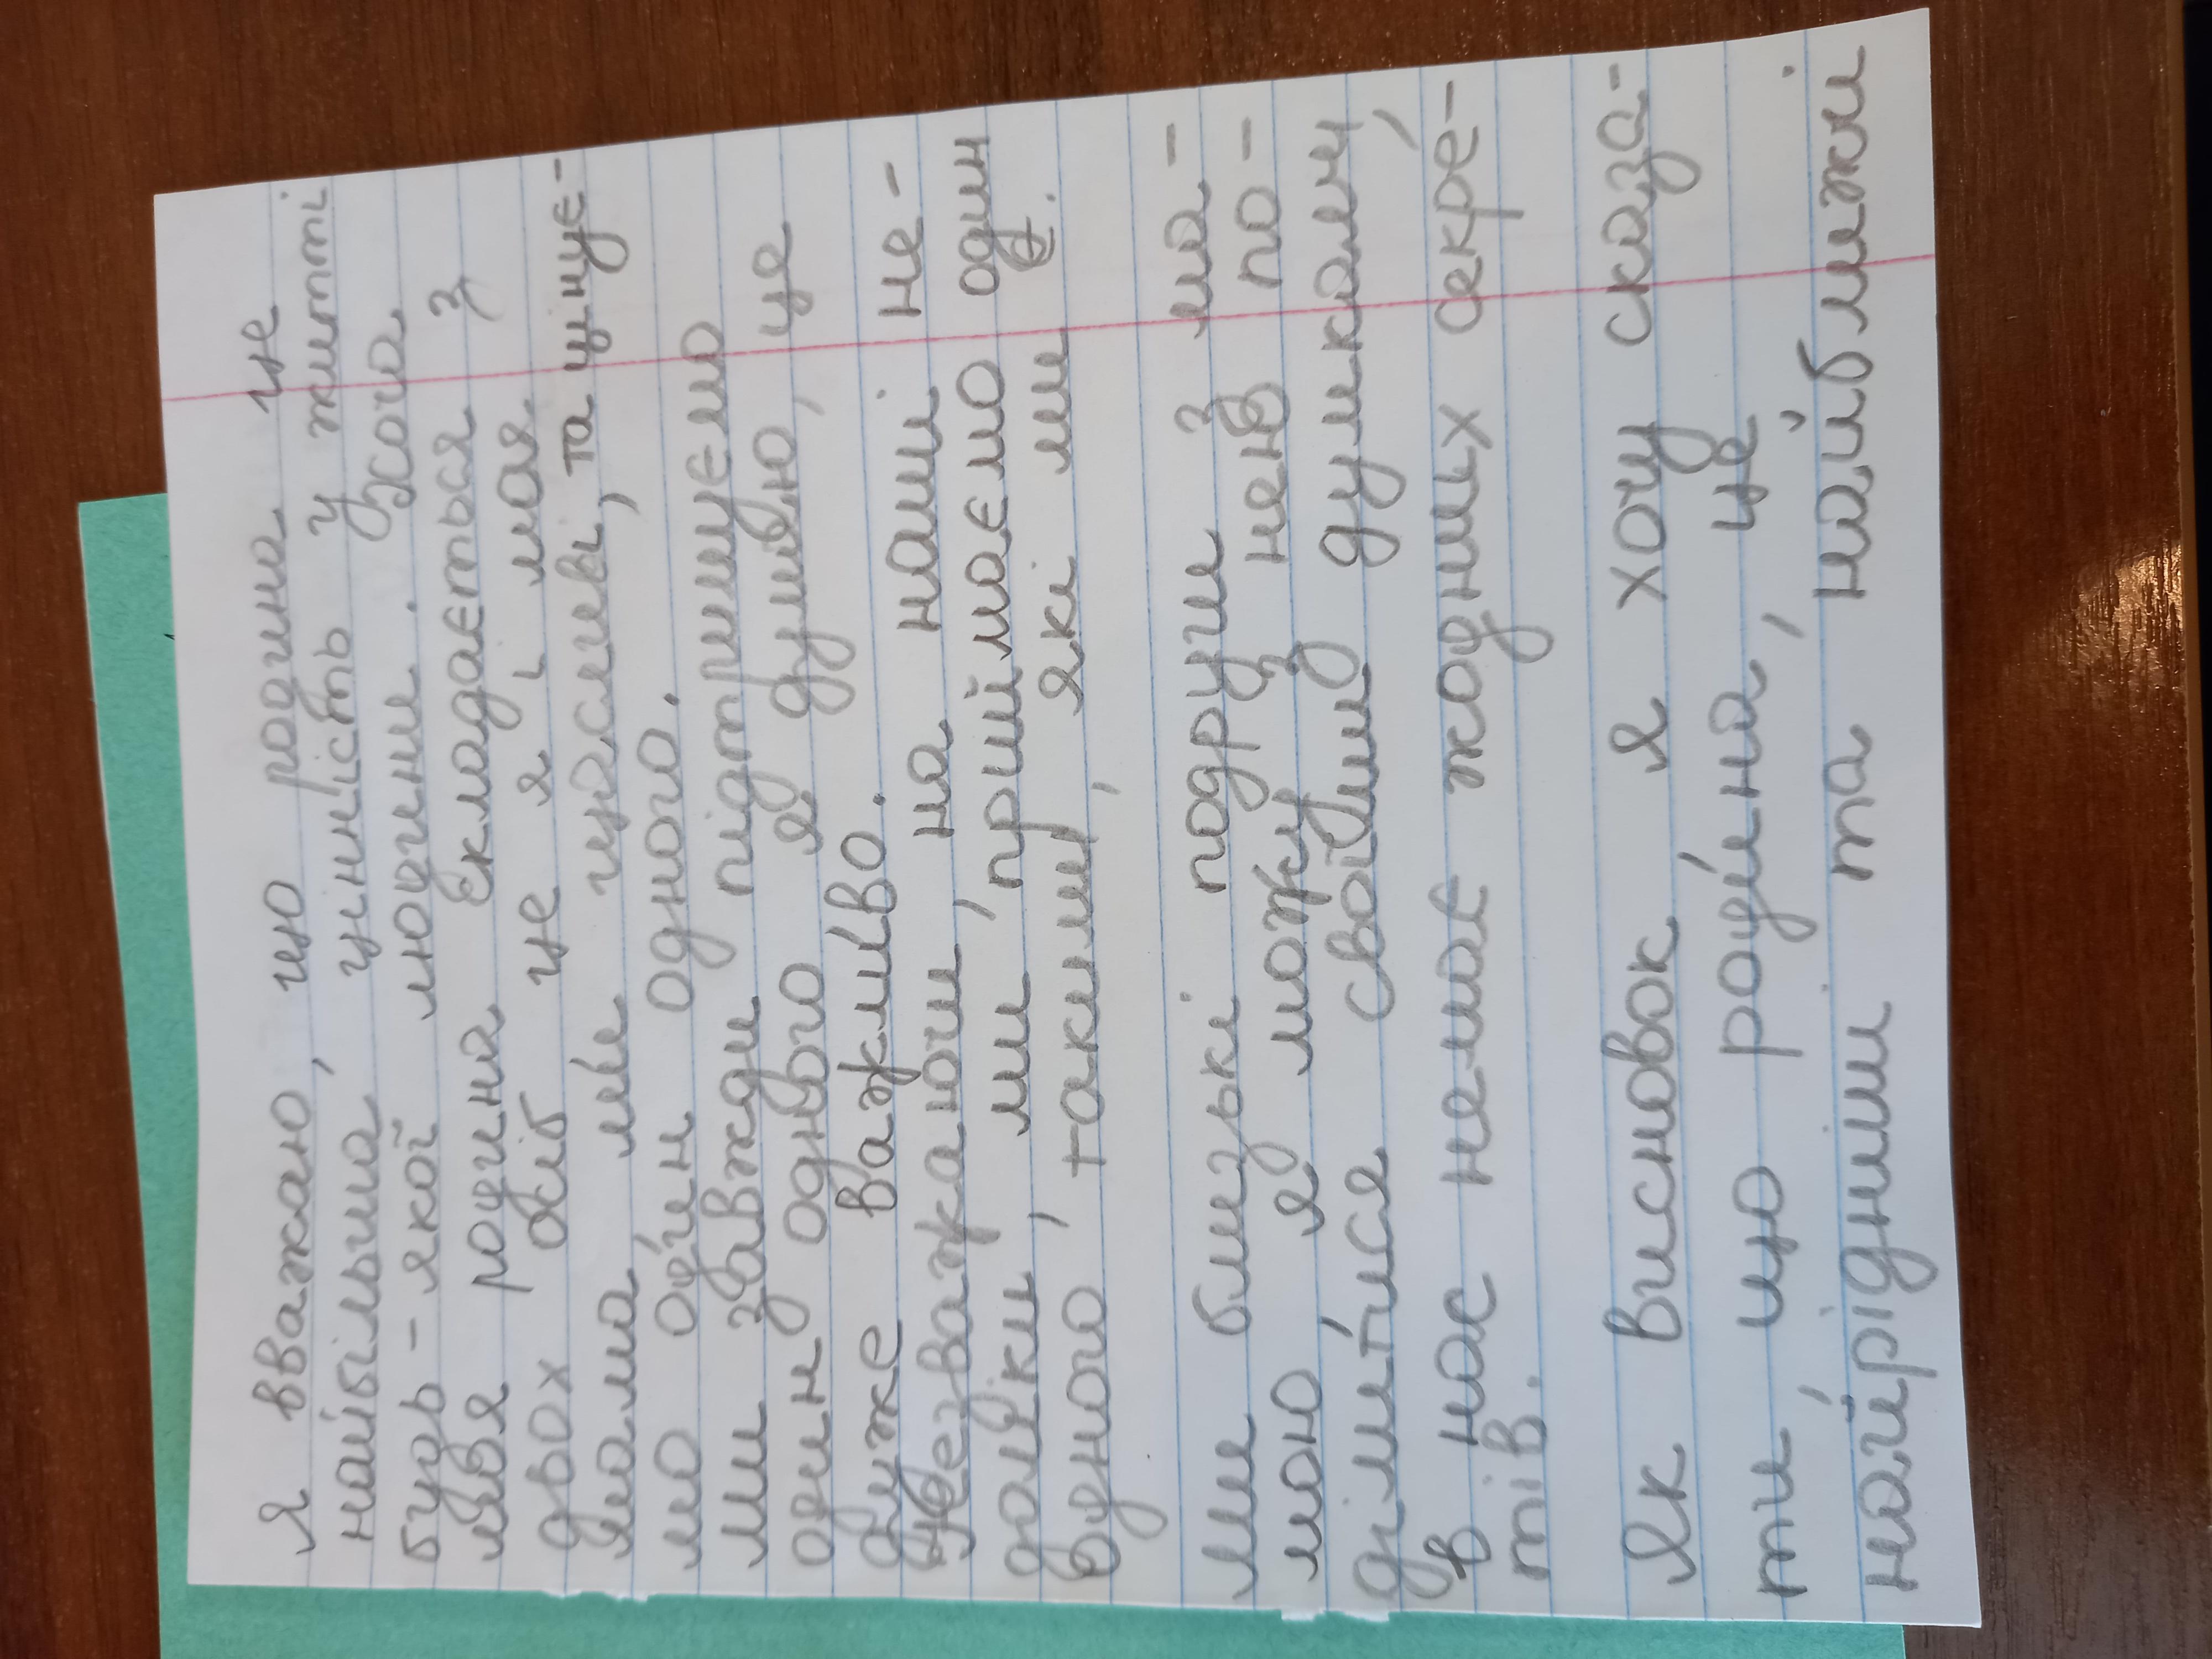 Я вважаю, що родина це
найбільша цінність у житті
будь-якої людини. Хоча
моя родина складається з
двох осіб це я і моя
мама, ми щасливі, та цінує-
мо один одного.
Ми завжди підтримуємо
один одного я думаю, це
дуже важливо.
Незважаючи, на наші не-
доліки, ми приймаємо один
одного, такими, які ми є.
Ми близькі подруги з ма-
мою я можу з нею по-
ділитися своїми думками,
в нас немає жодних секре-
тів.
Як висновок я хочу сказа-
ти, що родина, це
найрідніши та найближчі